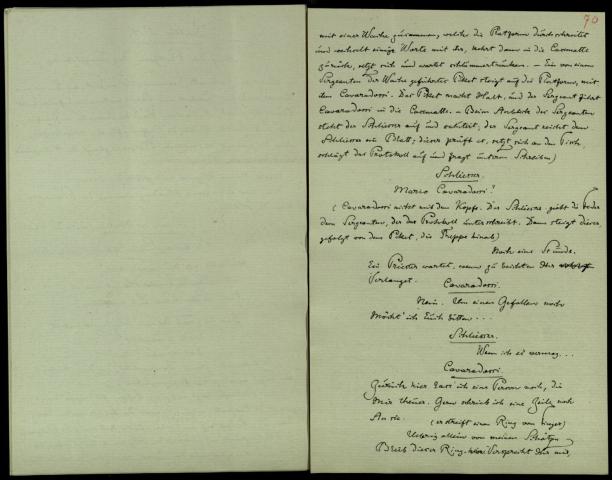 70
mit einer Wache zusammen, welche die Platform durchschreitet
und wechselt einige Worte mit ihr, kehrt dann in die Casematte
zurück, setzt sich und wartet schlummertrunken. – Ein von einem
Sergeanten der Wache geführter Piket steigt auf die Platform, mit
ihm Cavaradossi. Das Piket macht Halt, und der Sergeant führt
Cavaradossi in die Casematte. – Beim Anblick des Sergeanten
steht der Schliesser auf und salutirt; der Sergeant reicht dem
Schliesser ein Blatt; dieser prüft es, setzt sich an den Tisch,
schlägt das Protokoll auf und fragt unterm Schreiben)
Schliesser.
Mario Cavaradossi?
(Cavaradossi nickt mit dem Kopfe. Der Schliesser giebt die Feder
dem Sergeanten, der das Protokoll unterschreibt. Dann steigt dieser
gefolgt von dem Piket, die Treppe hinab)
Noch eine Stunde.
Ein Priester wartet, wenn zu beichten Ihr
Verlanget.
Cavaradossi.
Nein. Um einen Gefallen noch
Möcht' ich Euch bitten...
Schliesser.
Wenn ich es vermag...
Cavaradossi.
Zurück hier lass ich eine Person noch, die
Mir theuer. Gern schrieb ich eine Zeile noch
An sie. (er streift einen Ring vom Finger)
Uebrig allein von meinen Schätzen
Blieb dieser Ring. Versprecht Ihr mir,